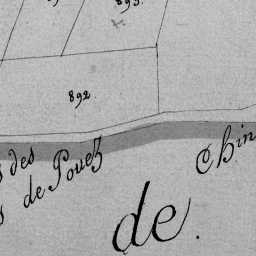 893.
892.
des
de Pouez
Chin
de.